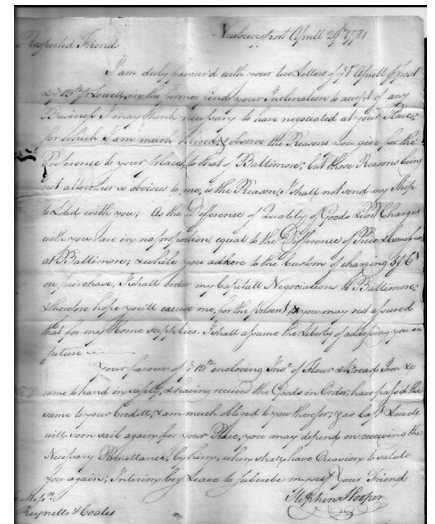 Newburyport Aprill 29th 1771
Respected Friend
I am duly favour'd with your two Letters of ye 1st Aprill
Lowell, in the former find your Inclination to accept of any
Business I may think necessary to have negotiated at your Place,
for which I am much obliged; & observe the Reasons You give for the
Preference to your Place, to that of Baltimore; but those Reasons being
not altogether so obvious to me, as the Reasons, I shall not send my Ship
to Load with you; As the Difference of Quality of Goods & Port Charges
with you are in no proportion equal to the Difference of Price &
at Baltimore; & while you adhere to the Custom of charging
on purchase, I shall order my Capitall Negociations to Baltimore;
therefore hope you'll excuse me, for the present, & you may rest assured
that for my Home supplies, I shall assume the Liberty of addressing you in
future
Your favour of ye 12th enclosing Invo of Flour & Bread, Iron &c
came to hand in safety, & having received the Goods in Order, have pass'd the
same to your Credit, & am much obliged to you therefor; & as Capt Lowell
will soon sail again for your Place, you may depend on receiving the
Necessary Remittance, by him, when shall have Occasion to salute
you again; Interim beg Leave to subscribe myself your Friend
Stephen Hooper
Messrs
Reynells & Coates